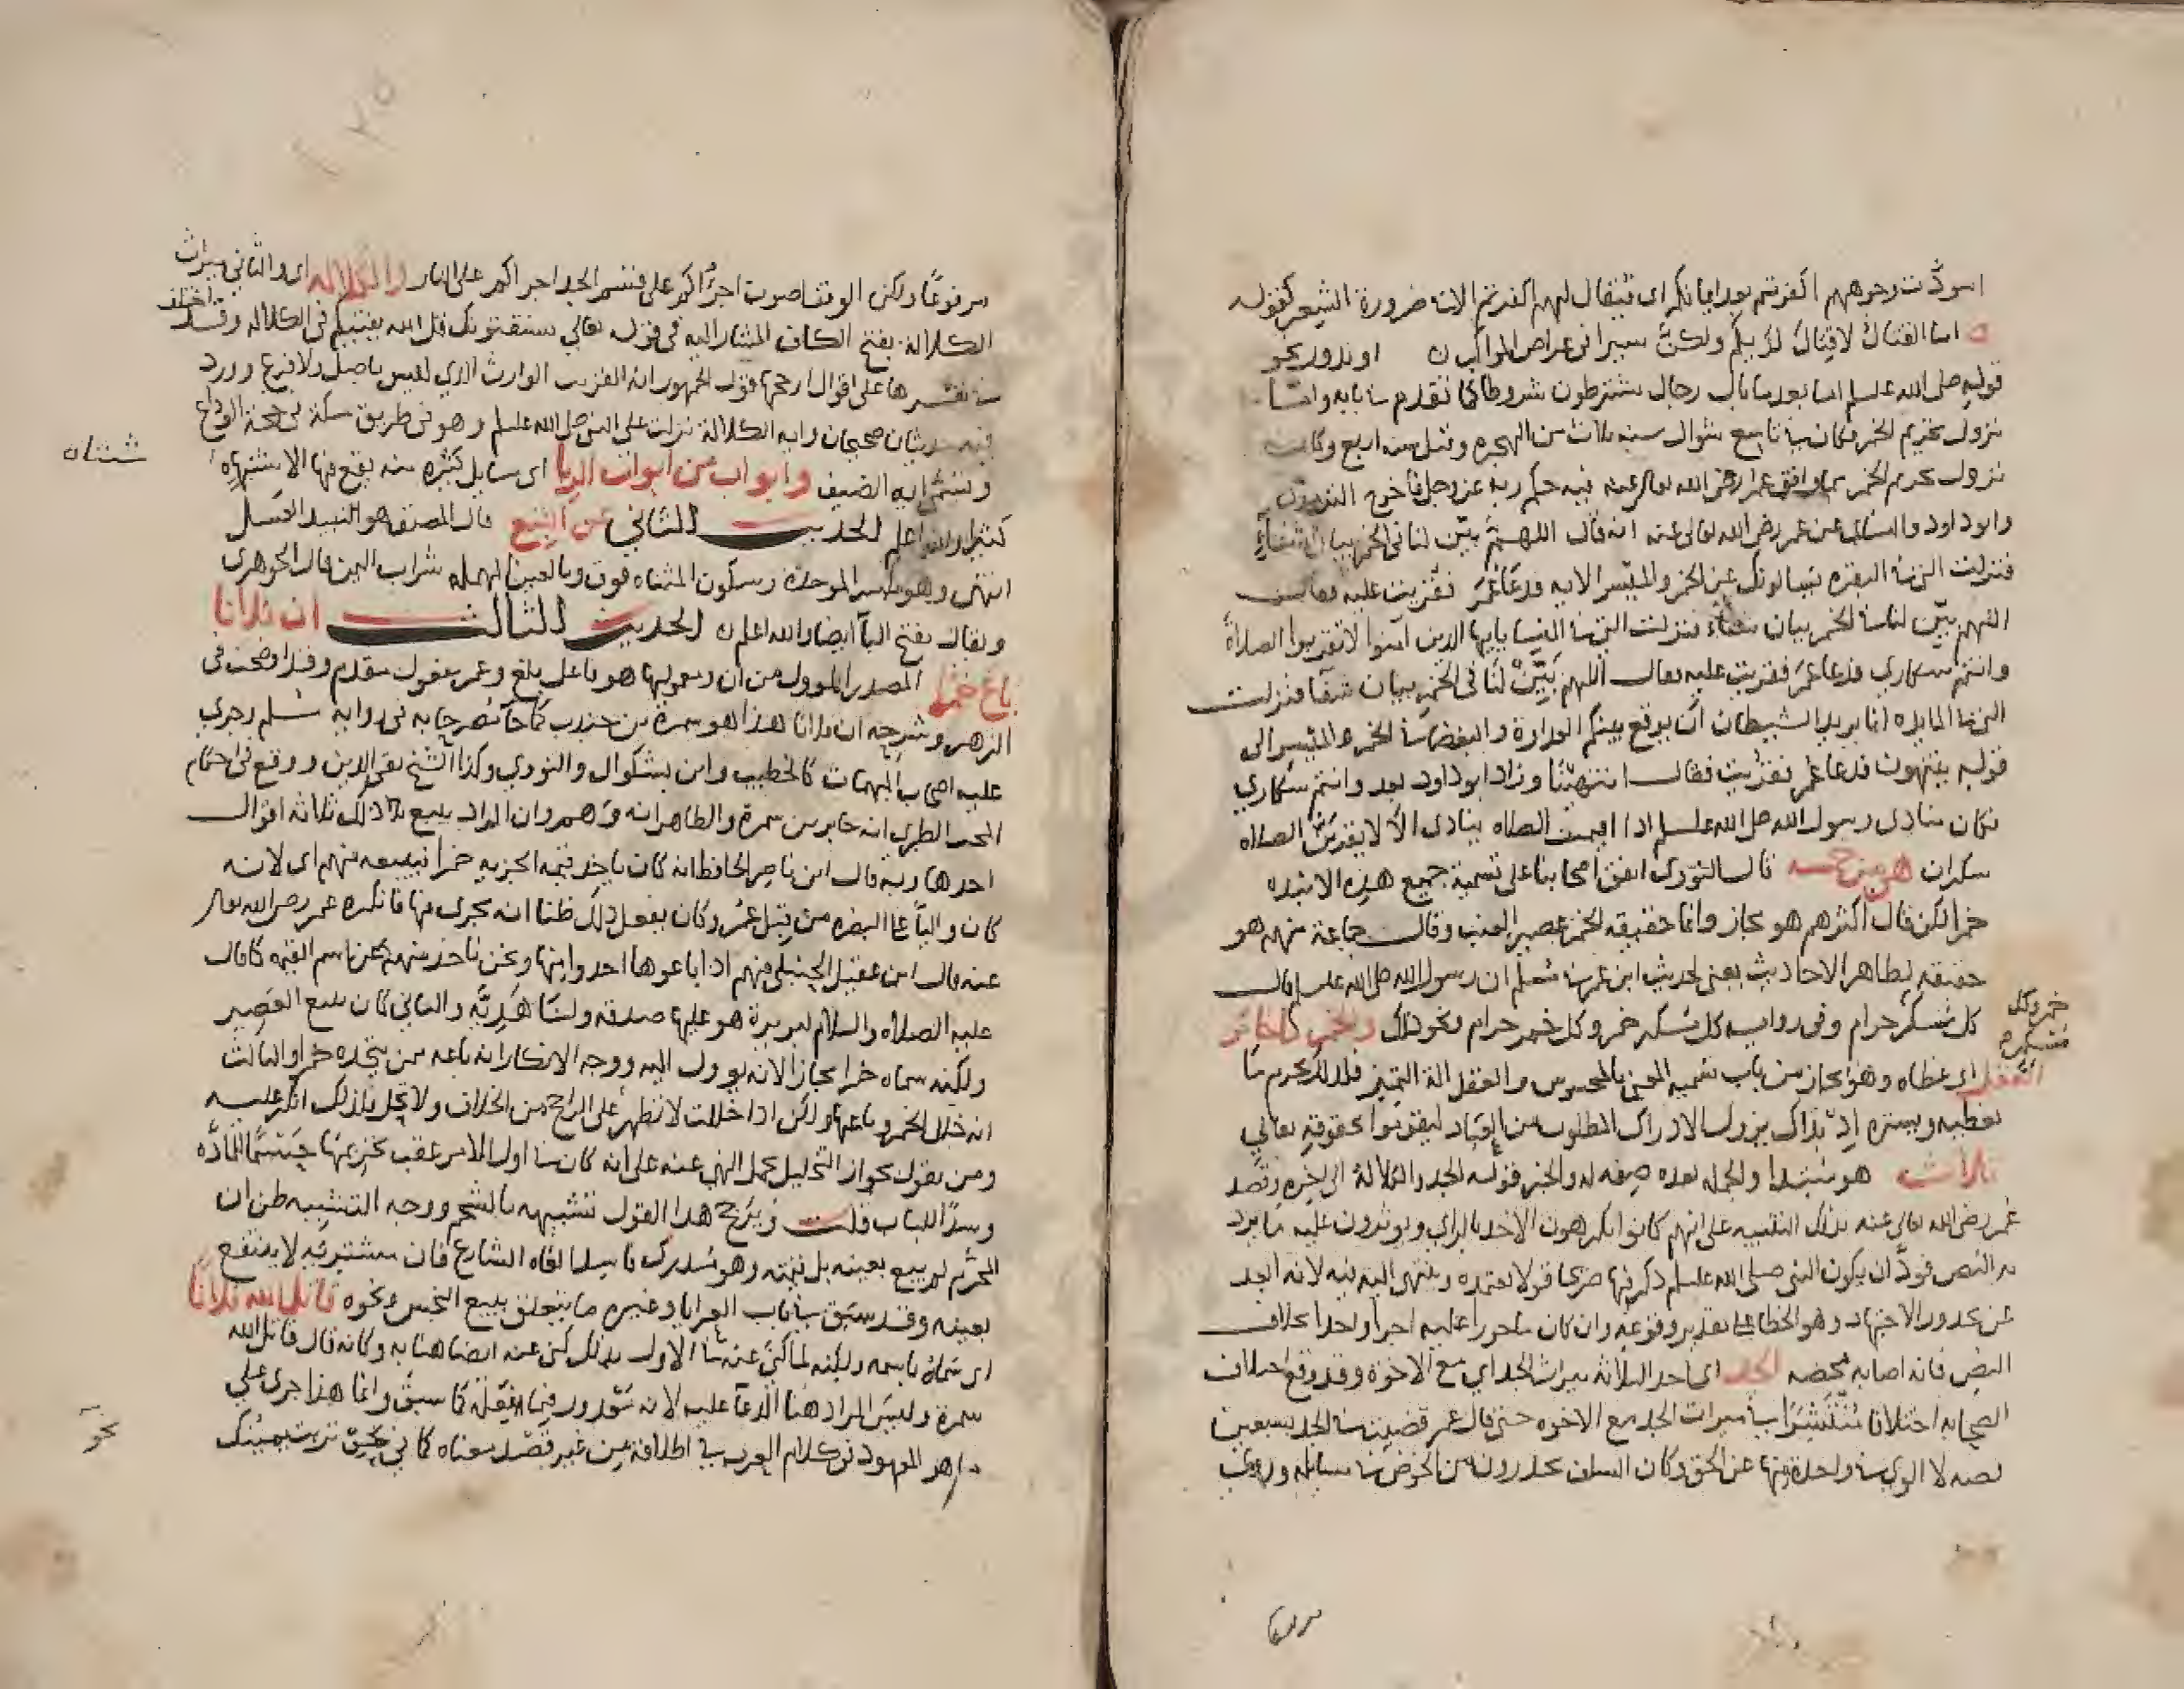 اسودّت وجوههم اكفرتم بعد ايمانكم اى فيقال لهم اكفرتم الا في ضرورة الشعر كقوله
اما القتال لا قتال لديكم ولكنّ سيرا في عراض المواكب ن او ندور نحو
قوله صلى الله عليه وسلم اما بعد ما بال رجال يشترطون شروطا كما تقدم في بابه واما
نزول تحريم الخمر فكان في تاسع شوال سنه ثلاث من الهجره وقيل سنه اربع وكانت
نزول تحريم الخمر مما وافق عمر رضى الله تعالى عنه فيه حكم ربه عز وجل فاخرج الترمذى
وابو داود والنساى عن عمر رضى الله تعالى عنه انه قال اللهم بيّن لنا في الخمر بيان شفاءٍ
فنزلت التي في البقره يسالونك عن الخمر والميسر الايه فدعا عمر فقريت عليه فقال
اللهم بيّن لنا في الخمر بيان شفاء فنزلت التي في النسا يايها الذين امنوا لا تقربوا الصلاة
وانتم سكارى فدعا عمر فقريت عليه فقال اللهم بيّن لنا في الخمر بيان شفا فنزلت
التي في المايده انما يريد الشيطان ان يوقع بينكم العداوة والبغضا في الخمر والميسر الى
قوله منتهون فدعا عمر فقريت فقال انتهينا وزاد ابو داود بعد وانتم سكارى
فكان منادى رسول الله صلى الله عليه وسلم اذا اقيمت الصلاه ينادى الا لا يقربنّ الصلاه
سكران هو من خمسه قال النووى اتفق اصحابنا على تسمية جميع هذه الانبذه
خمرا لكن قال اكثرهم هو مجاز وانما حقيقه الخمر عصير العنب وقال جماعة منهم هو
حقيقه لظاهر الاحاديث يعنى لحديث ابن عمر في مسلم ان رسول الله صلى الله عليه وسلم قال
كل مسكر حرام وفى روايه كل مسكر خمر وكل خمر حرام ونحو ذلك والخمر ما خامر
خمر وكل مسكر
العقل اى غطاه وهو مجاز من باب تشبيه المعنى بالمحسوس والعقل الة التمييز فلذلك حرم ما
يغطيه ويستره اذ بذاك يزول الادراك المطلوب من العباد ليقوموا بحقوقه تعالى
ثلاث هو مبتدا والجمله بعده صفه له والخبر قوله الجد والكلالة الى اخره وقصد
عمر رضى الله تعالى عنه بذلك التنبيه على انهم كانوا يكرهون الاخذ بالراى ويوثرون عليه ما يرد
به النص فودّ ان يكون النبي صلى الله عليه وسلم ذكر فيها صريحا قولا نعتمده وينتهى اليه فيه لانه ابعد
عن محذور الاجتهاد وهو الخطا على تقدير وقوعه وان كان ماجورا عليه اجرا واحدا بخلاف
النص فانه اصابه محضه الجد اى احد الثلاثه ميراث الجد اي مع الاخوة وقد وقع اختلاف
الصحابه اختلافا منتشرا في ميراث الجد مع الاخوه حتى قال عمر قضيت في الجد بسبعين
قصه لا الوى في واحدة منها عن الحق وكان السلف يحذرون من الخوض في مسايله وروى
مرفوعا ولكن الوقف اصوب اجرؤكم على قسم الجد اجراكم على النار والكلاله اى والثانى ميراث
الكلالة بفتح الكاف المشار اليه في قوله تعالى يستفتونك قل الله يفتيكم فى الكلاله وقد اختلف
في تفسيرها على اقوال ارجحها قول الجمهور انه القريب الوارث الذي ليس باصل ولا فرع وورد
فيه حديثان صحيحان وايه الكلالة نزلت على النبي صلى الله عليه وسلم وهو فى طريق مكة في حجة الوداع
وتسمّى ايه الصيف وابواب من ابواب الربا اى مسايل كثيره منه يقع فيها الاشتباه
كثيرا والله اعلم الحديث الثاني عن البتع قال المصنف هو النبيذ العسل
انتهى وهو بكسر الموحدة وسكون المثناه فوق وبالعين المهمله شراب اليمن قال الجوهرى
ويقال بفتح البآ ايضا والله اعلم ن الحديث الثالث ان فلانا
باع خمرا المصدر المؤول من ان ومعموليها هو فاعل بلغ وعمر مفعول مقدم وقد اوضحت في
الزهر وشرحه ان فلانا هذا هو سمرة بن جندب كما جا مصرحا به في رواية مسلم وجرى
عليه اصحاب المبهمات كالخطيب وابن بشكوال والنووى وكذا الشيخ تقي الدين ووقع فى احكام
المحب الطبرى انه جابر بن سمرة والظاهر انه وهم وان المراد ببيع ذلك ثلاثه اقوال
احدها وبه قال ابن ناصر الحافظ انه كان ياخذ قيمه الجزيه خمرا فيبيعه منهم اى لانه
كان واليا على البصره من قبل عمر وكان يفعل ذلك ظنا انه يجزى فيها فانكره عمر رضى الله تعالى
عنه قال ابن عقيل الحنبلى منهم اذا باعوها اخذوا ثمنها ونحن ناخذ منهم عن اسم القيمه كما قال
عليه الصلاه والسلام لبريرة هو عليها صدقه ولنا هديّه والثانى كان يبيع العصير
ولكنه سماه خمرا مجازا لانه يوول اليه ووجه الانكار انه باعه من يتخذه خمرا والثالث
انه خلل الخمر وباعها ولكن اذا خللت لا تطهر على الراجح من الخلاف ولا تحل فلذلك انكر عليه
ومن يقول بجواز التخليل يحمل النهى عنه على انه كان في اول الامر عقب تحريمها حسما للمادّه
وسدّا للباب قلت ويرجح هذا القول تشبيهه بالشحم ووجه التشبيه ظن ان
المحرّم لم يبيع بعينه بل قيمته وهو مدرك فاسد القاه الشارع فان مشتريه لا ينتفع
بعينه وقد سبق في باب العرايا وغيره ما يتعلق ببيع النجس ونحوه قاتل الله فلانا
اى سماه باسمه ولكنه لما كنّى عنه في الاول بذلك كنى عنه ايضا هنا به وكانه قال قاتل الله
سمرة وليس المراد هنا الدعا عليه لانه معذور فيما فعله كما سبق وانما هذا جرى على
ما هو المعهود في كلام العرب في اطلاقه من غير قصد معناه كما في نحو تربت يمينك
نحو